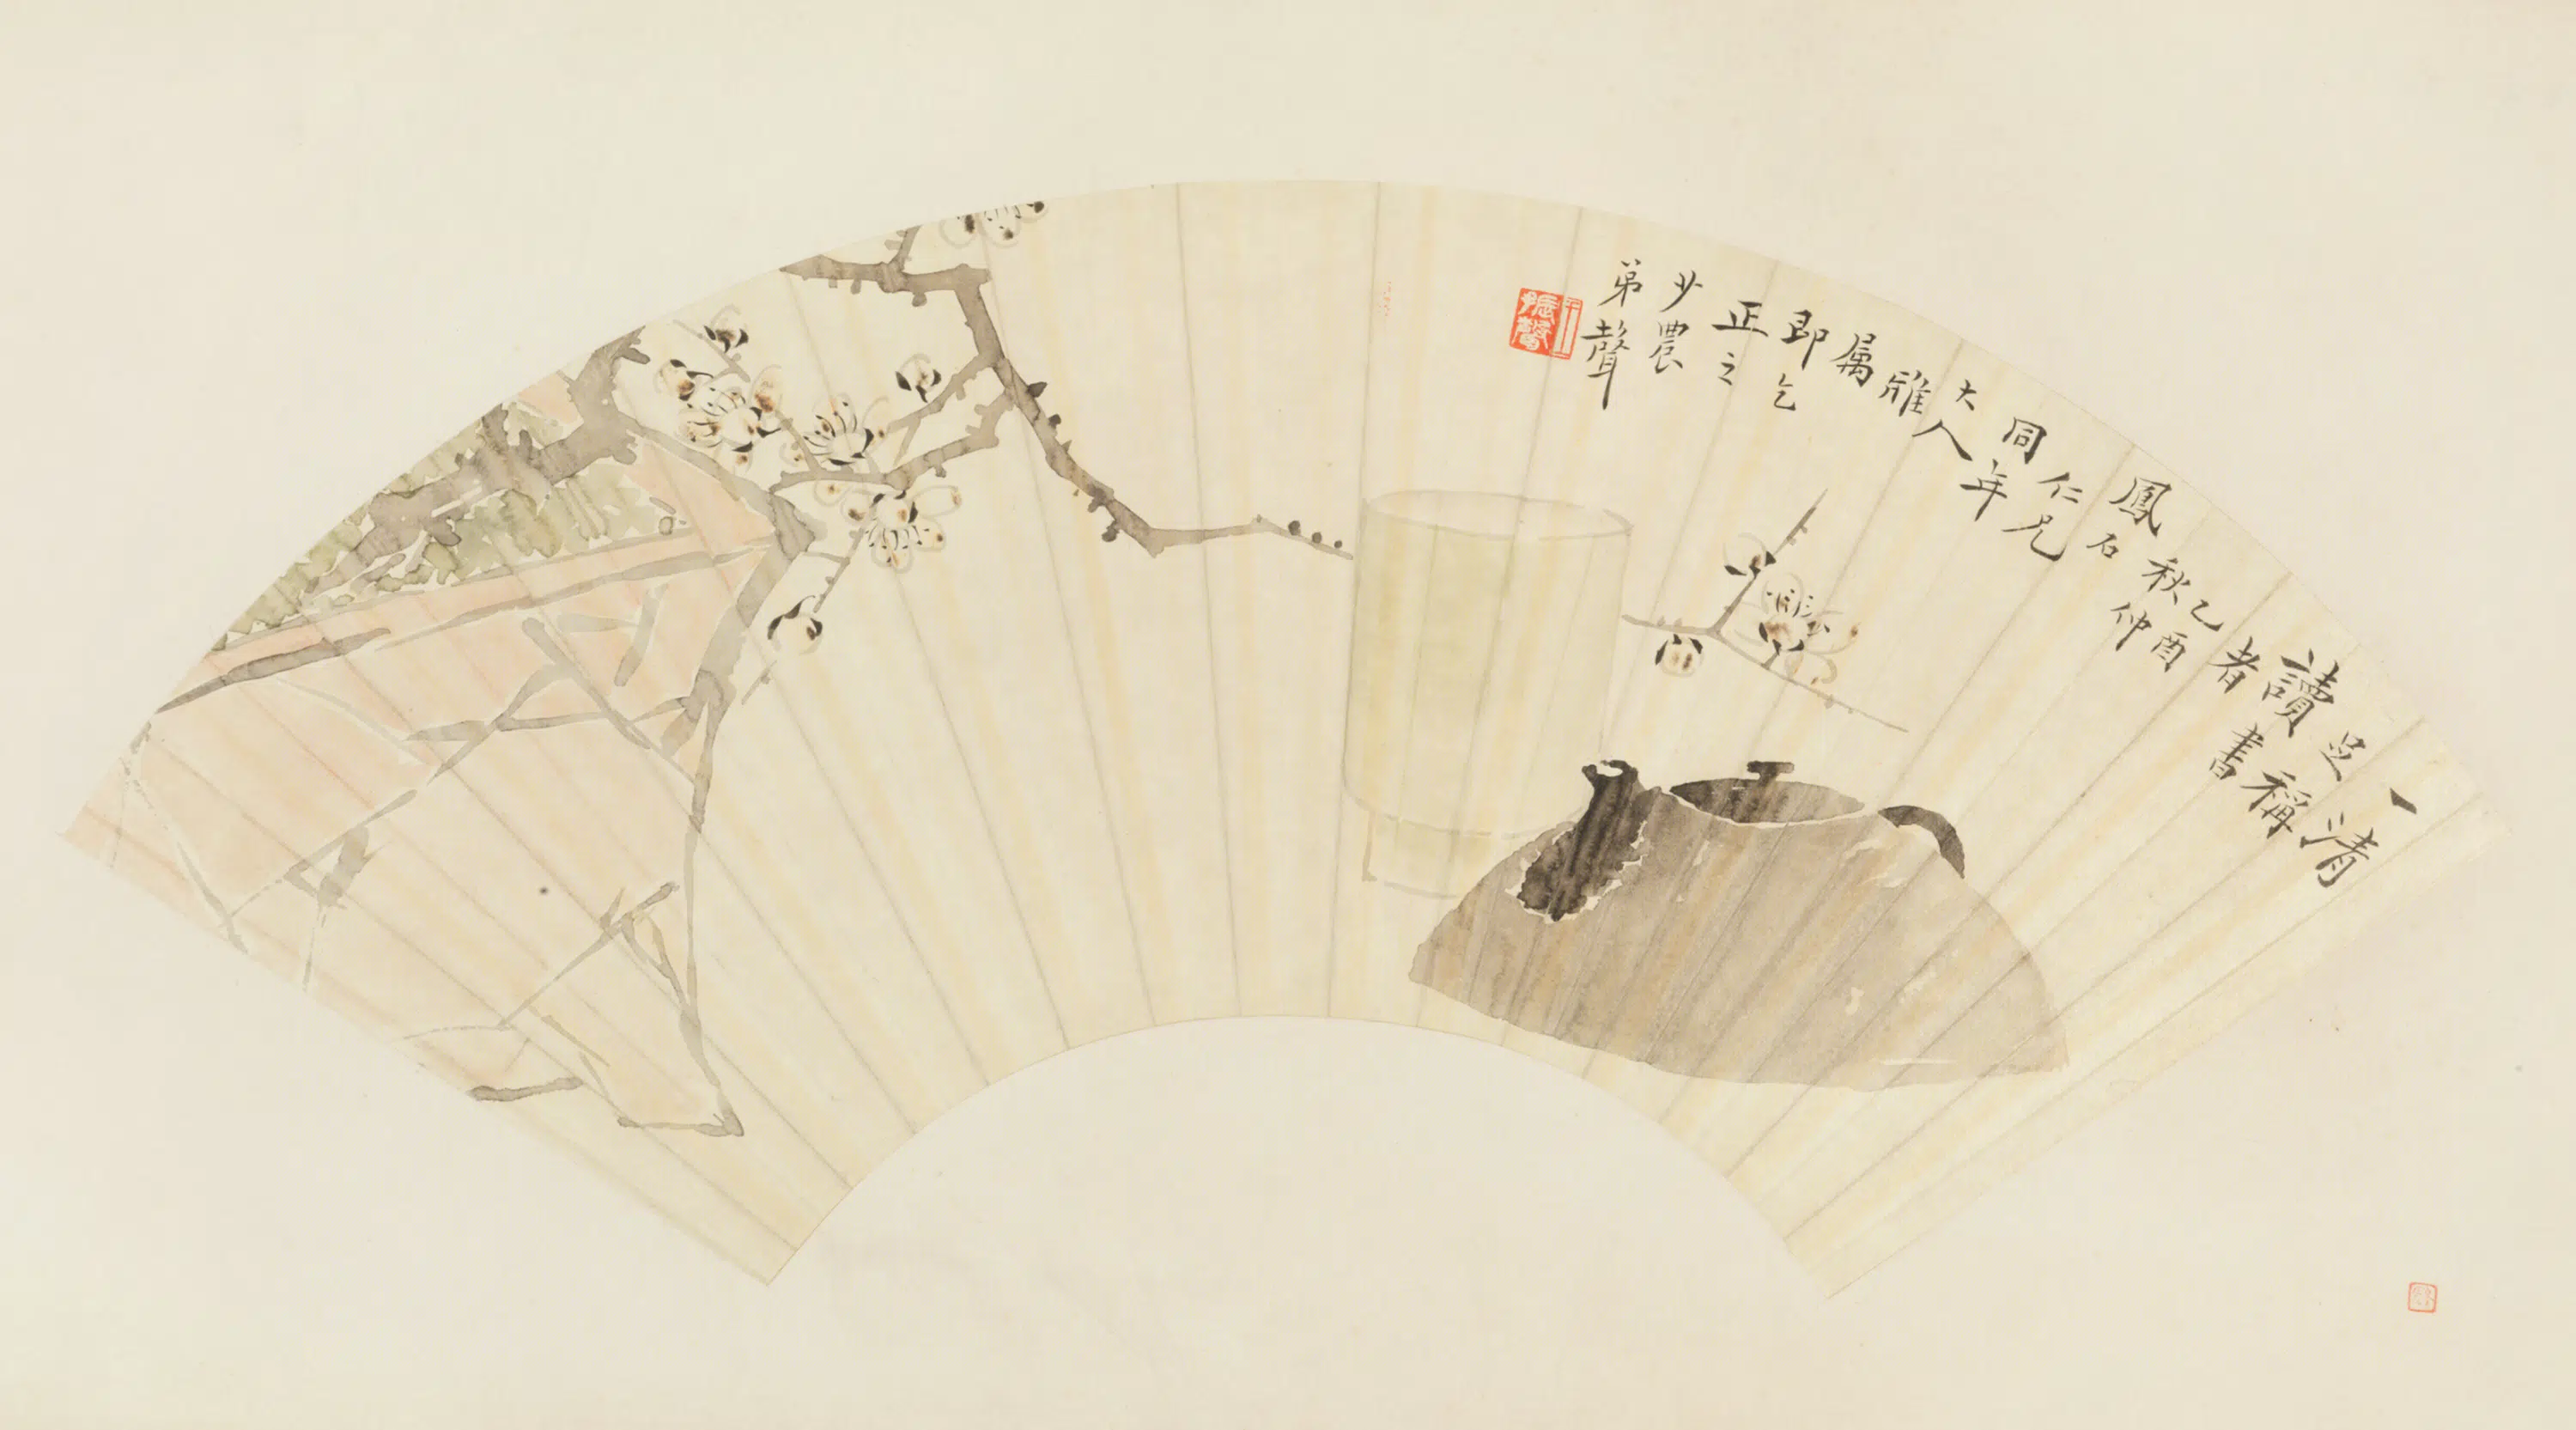 一清
足稱
讀書
者
乙酉
秋仲
鳳石
仁兄
同年
大人
雅
属
即乞
正之
少農
弟聲
王振聲